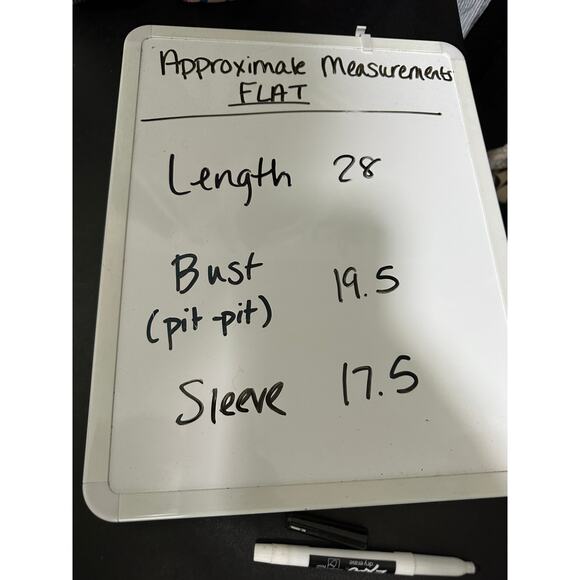 Approximate Measurements
FLAT
Length 28
Bust 19.5
(pit-pit)
Sleeve 17.5
dry erase